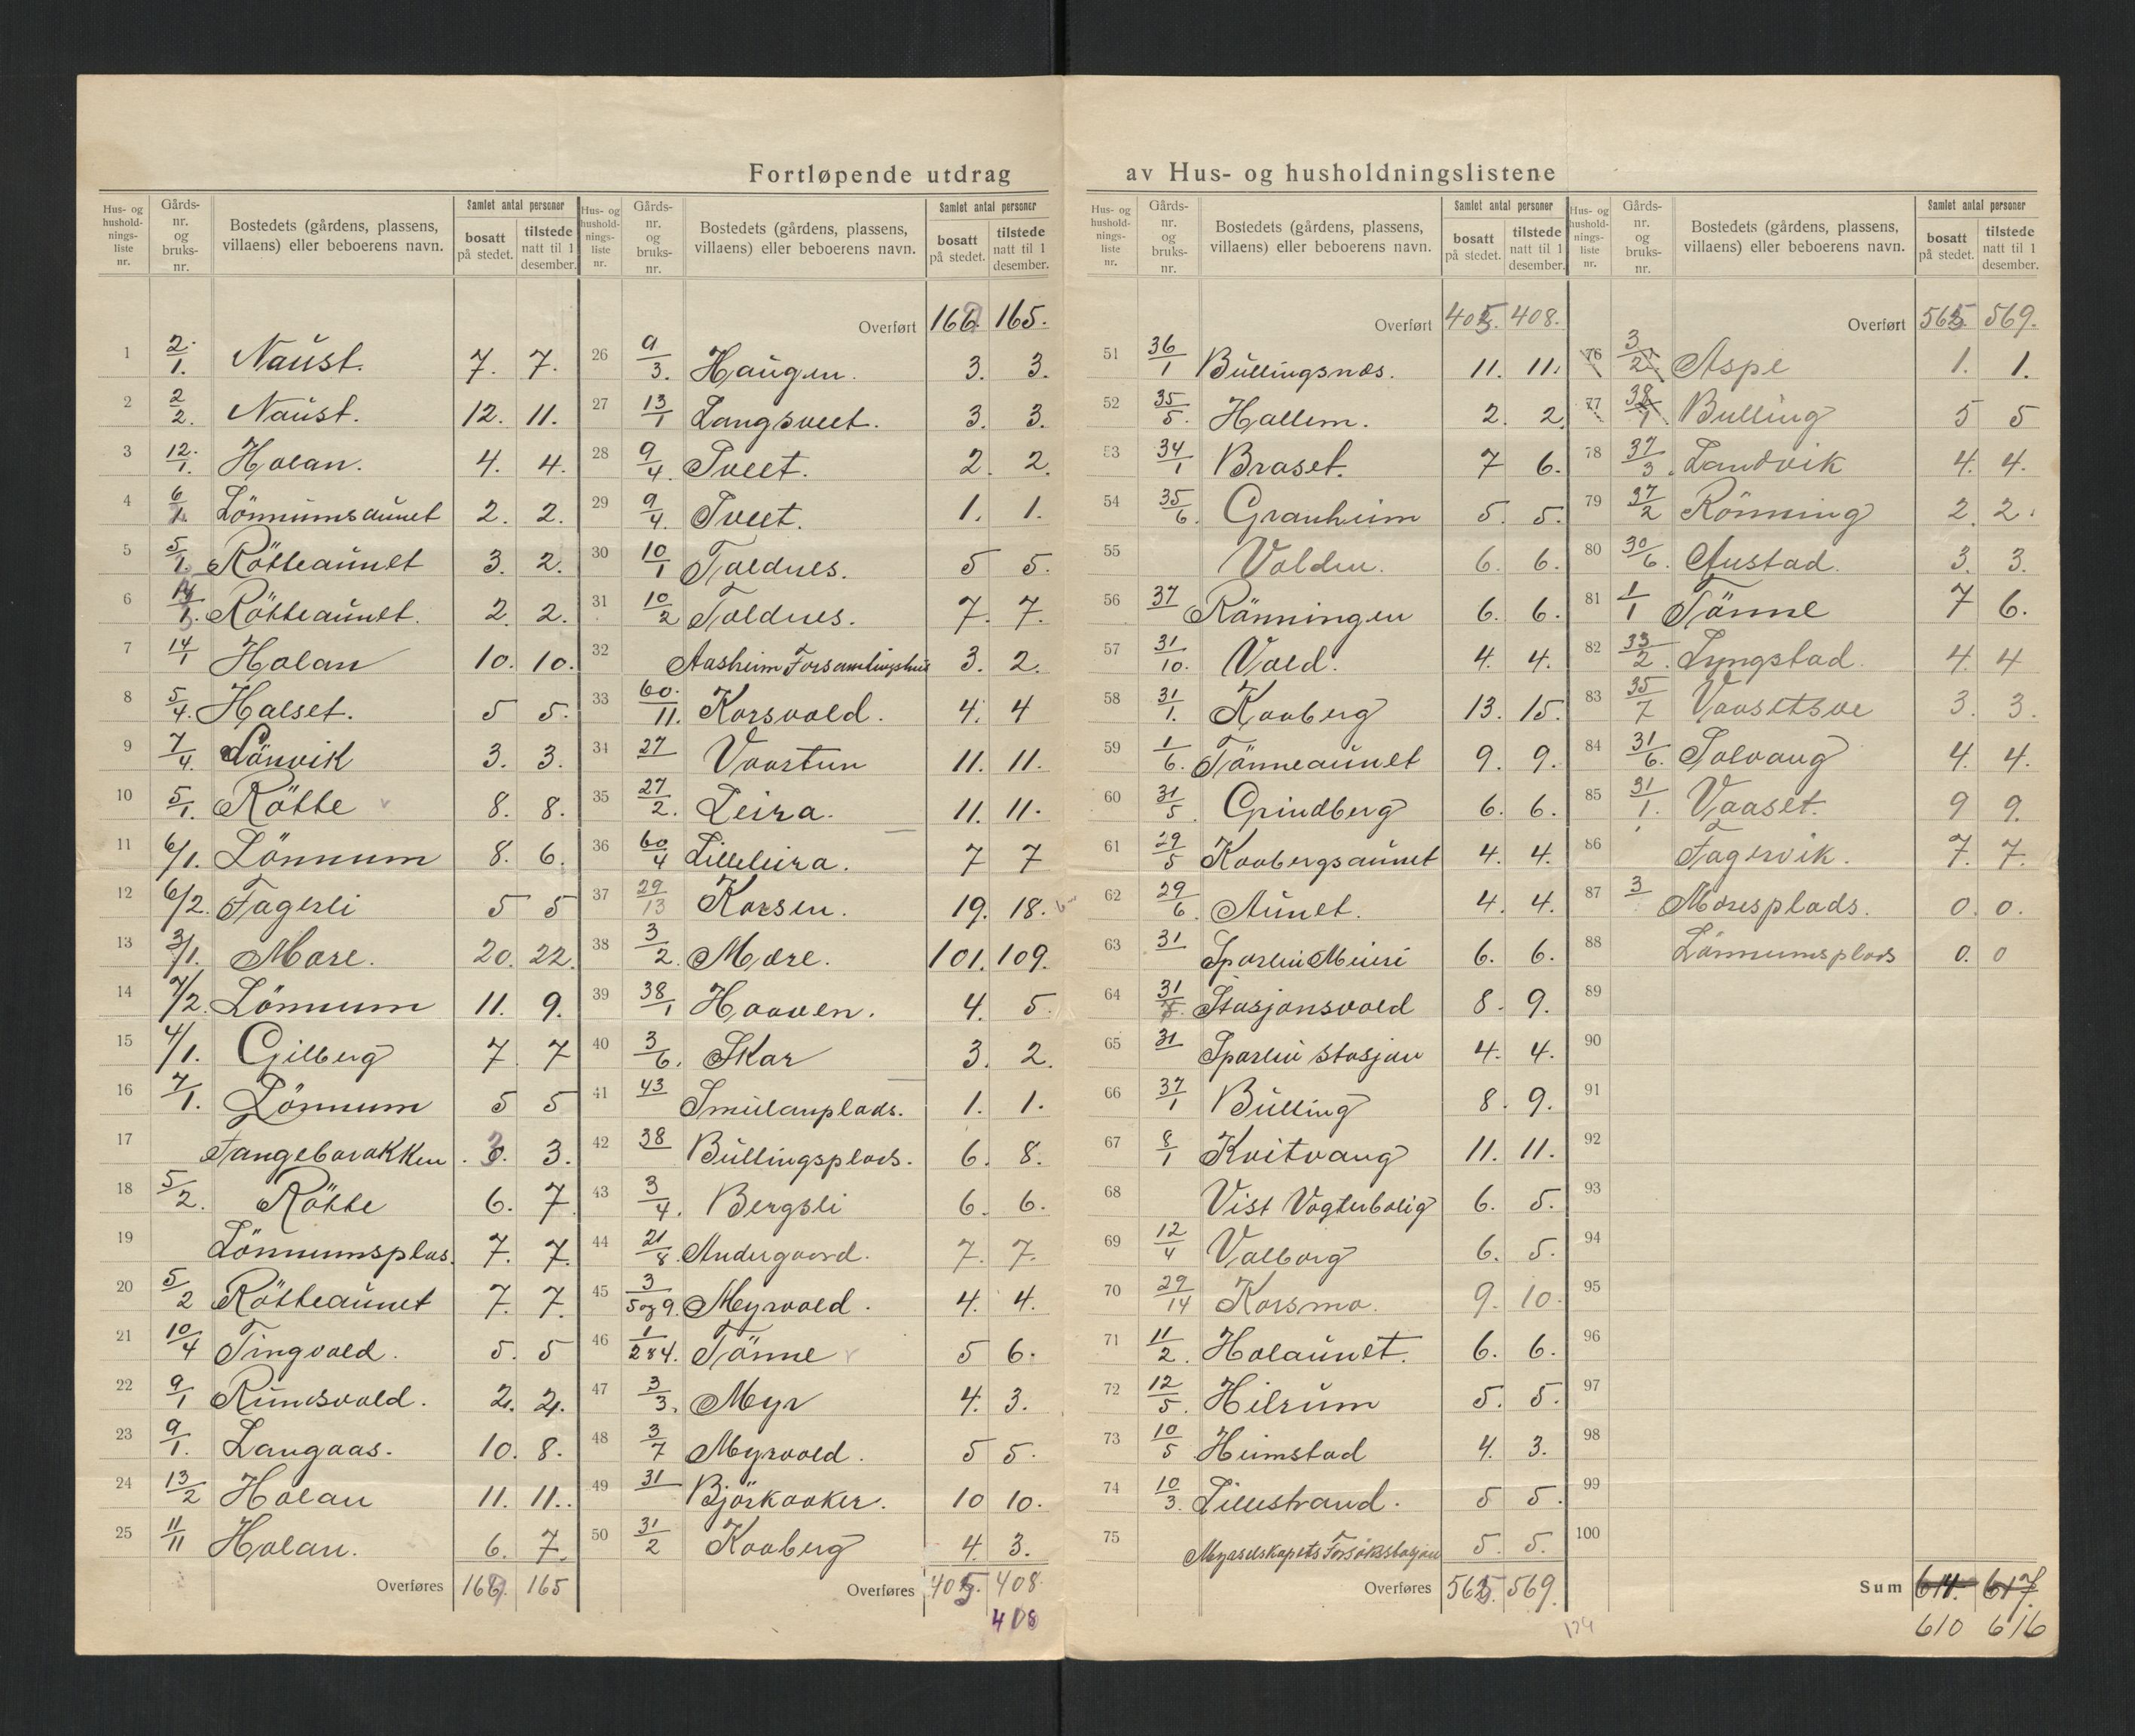 Fortløpende utdrag av Hus- og husholdningslistene
Hus- og hushold-nings-liste nr. Gårds-nr. og bruks-nr. Bostedets (gårdens, plassens, villaens) eller beboerens navn. Samlet antal personer bosatt på stedet. tilstede natt til 1 desember.
1 2/1. Naust. 7. 7.
2 2/2. Naust. 12. 11.
3 12/1. Holan. 4. 4.
4 6/1. Lönnumsaunet 2. 2.
5 5/1. Rötteaunet 3. 2.
6 Rötteaunet. 2. 2.
7 14/1 Holan 10. 10.
8 5/4. Halset. 5 5.
9 7/4. Lönvik 3. 3.
10 5/1. Rötte 8. 8.
11 6/1. Lönnum 8. 6.
12 6/2. Fagerli 5 5
13 3/1. Mære. 20. 22.
14 7/2. Lönnum 11. 9.
15 4/1. Gilberg 7. 7
16 7/1. Lönnum 5 5
17 Fangebarakken. 3. 3.
18 5/2. Rötte 6. 7.
19 Lönnumsplas. 7. 7.
20 5/2 Rötteaunet 7. 7.
21 10/4 Tingvold. 5. 5
22 9/1 Runesvold. 2. 2.
23 9/1. Langaas. 10. 8.
24 13/2 Holan 11. 11.
25 11/11 Holan. 6. 7.
Overføres 162. 165
Hus- og hushold-nings-liste nr. Gårds-nr. og bruks-nr. Bostedets (gårdens, plassens, villaens) eller beboerens navn. Samlet antal personer bosatt på stedet. tilstede natt til 1 desember.
Overført 162 165.
26 9/3. Haugen. 3. 3.
27 13/1 Langsveet. 3. 3.
28 9/4. Tveet. 2. 2.
29 9/4. Tveet. 1. 1.
30 10/1 Toldnes. 5 5.
31 10/2 Toldnes. 7. 7.
32 Aasheim Forsamlingshus 3. 2.
33 60/11. Korsvold. 4. 4
34 27 Vaartun 11. 11.
35 27/2. Leira. 11. 11.
36 60/4 Lilleleira. 7 7
37 29/13 Korsen. 19. 18.
38 3/2. Mære. 101. 109.
39 38/1 Haaven. 4. 5.
40 3/6. Skar 3. 2.
41 43 Smulanplads. 1. 1.
42 38 Bullingsplads. 6. 8.
43 3/4. Bergsli 6. 6.
44 21/8. Andergaard. 7. 7.
45 3/5 og 9. Myrvold. 4. 4.
46 1/2&4. Tönne 5 6.
47 3/3. Myr 4. 3.
48 3/7 Myrvold. 5 5.
49 31 Björkaaker. 10 10.
50 31/2 Kaaberg 4. 3.
Overføres 405. 408.
408
Hus- og hushold-nings-liste nr. Gårds-nr. og bruks-nr. Bostedets (gårdens, plassens, villaens) eller beboerens navn. Samlet antal personer bosatt på stedet. tilstede natt til 1 desember.
Overført 405. 408.
51 36/1 Bullingsnæs. 11. 11.
52 35/5. Hallem. 2. 2.
53 34/1 Braset. 7 6.
54 35/6. Granheim 5. 5.
55 Volden. 6. 6.
56 37 Rönningen 6. 6.
57 31/10. Vold. 4. 4.
58 31/1. Kaaberg 13. 15.
59 1/6. Tönneaunet 9. 9.
60 31/5. Grindberg 6. 6.
61 29/5 Kaabergsaunet 4. 4.
62 29/6. Aunet. 4. 4.
63 31 Sparbu Meieri 6. 6.
64 31/7. Stasjonsvold 8. 9.
65 31 Sparbu stasjon 4. 4.
66 37/1 Bulling 8. 9.
67 8/1 Kvitvang 11. 11.
68 Vist Vogterbolig 6. 5.
69 12/4 Valborg 6. 5.
70 29/14 Korsmo. 9. 10.
71 11/2. Holaunet. 6. 6.
72 12/5. Hilrum 5. 5.
73 10/5 Heimstad 4. 3.
74 10/3. Lillestrand. 5 5.
75 Myrselskapets Forsöksstasjon 5. 5.
Overføres 565. 569.
Hus- og hushold-nings-liste nr. Gårds-nr. og bruks-nr. Bostedets (gårdens, plassens, villaens) eller beboerens navn. Samlet antal personer bosatt på stedet. tilstede natt til 1 desember.
Overført 565. 569.
76 3/2. Aspe 1. 1.
77 38/1 Bulling 5 5
78 37/3. Landvik 4. 4.
79 37/2 Rönning 2. 2.
80 30/6. Austad. 3. 3.
81 1/1 Tönne 7 6.
82 33/2. Lyngstad. 4. 4
83 35/7 Vaasetsve 3. 3.
84 31/6. Solvang 4. 4.
85 31/1. Vaaset. 9 9.
86 Fagervik. 7. 7.
87 3 Mæresplads. 0. 0.
88 Lönnumsplads 0. 0
89
90
91
92
93
94
95
96
97
98
99
100
Sum 614. 617.
610 616